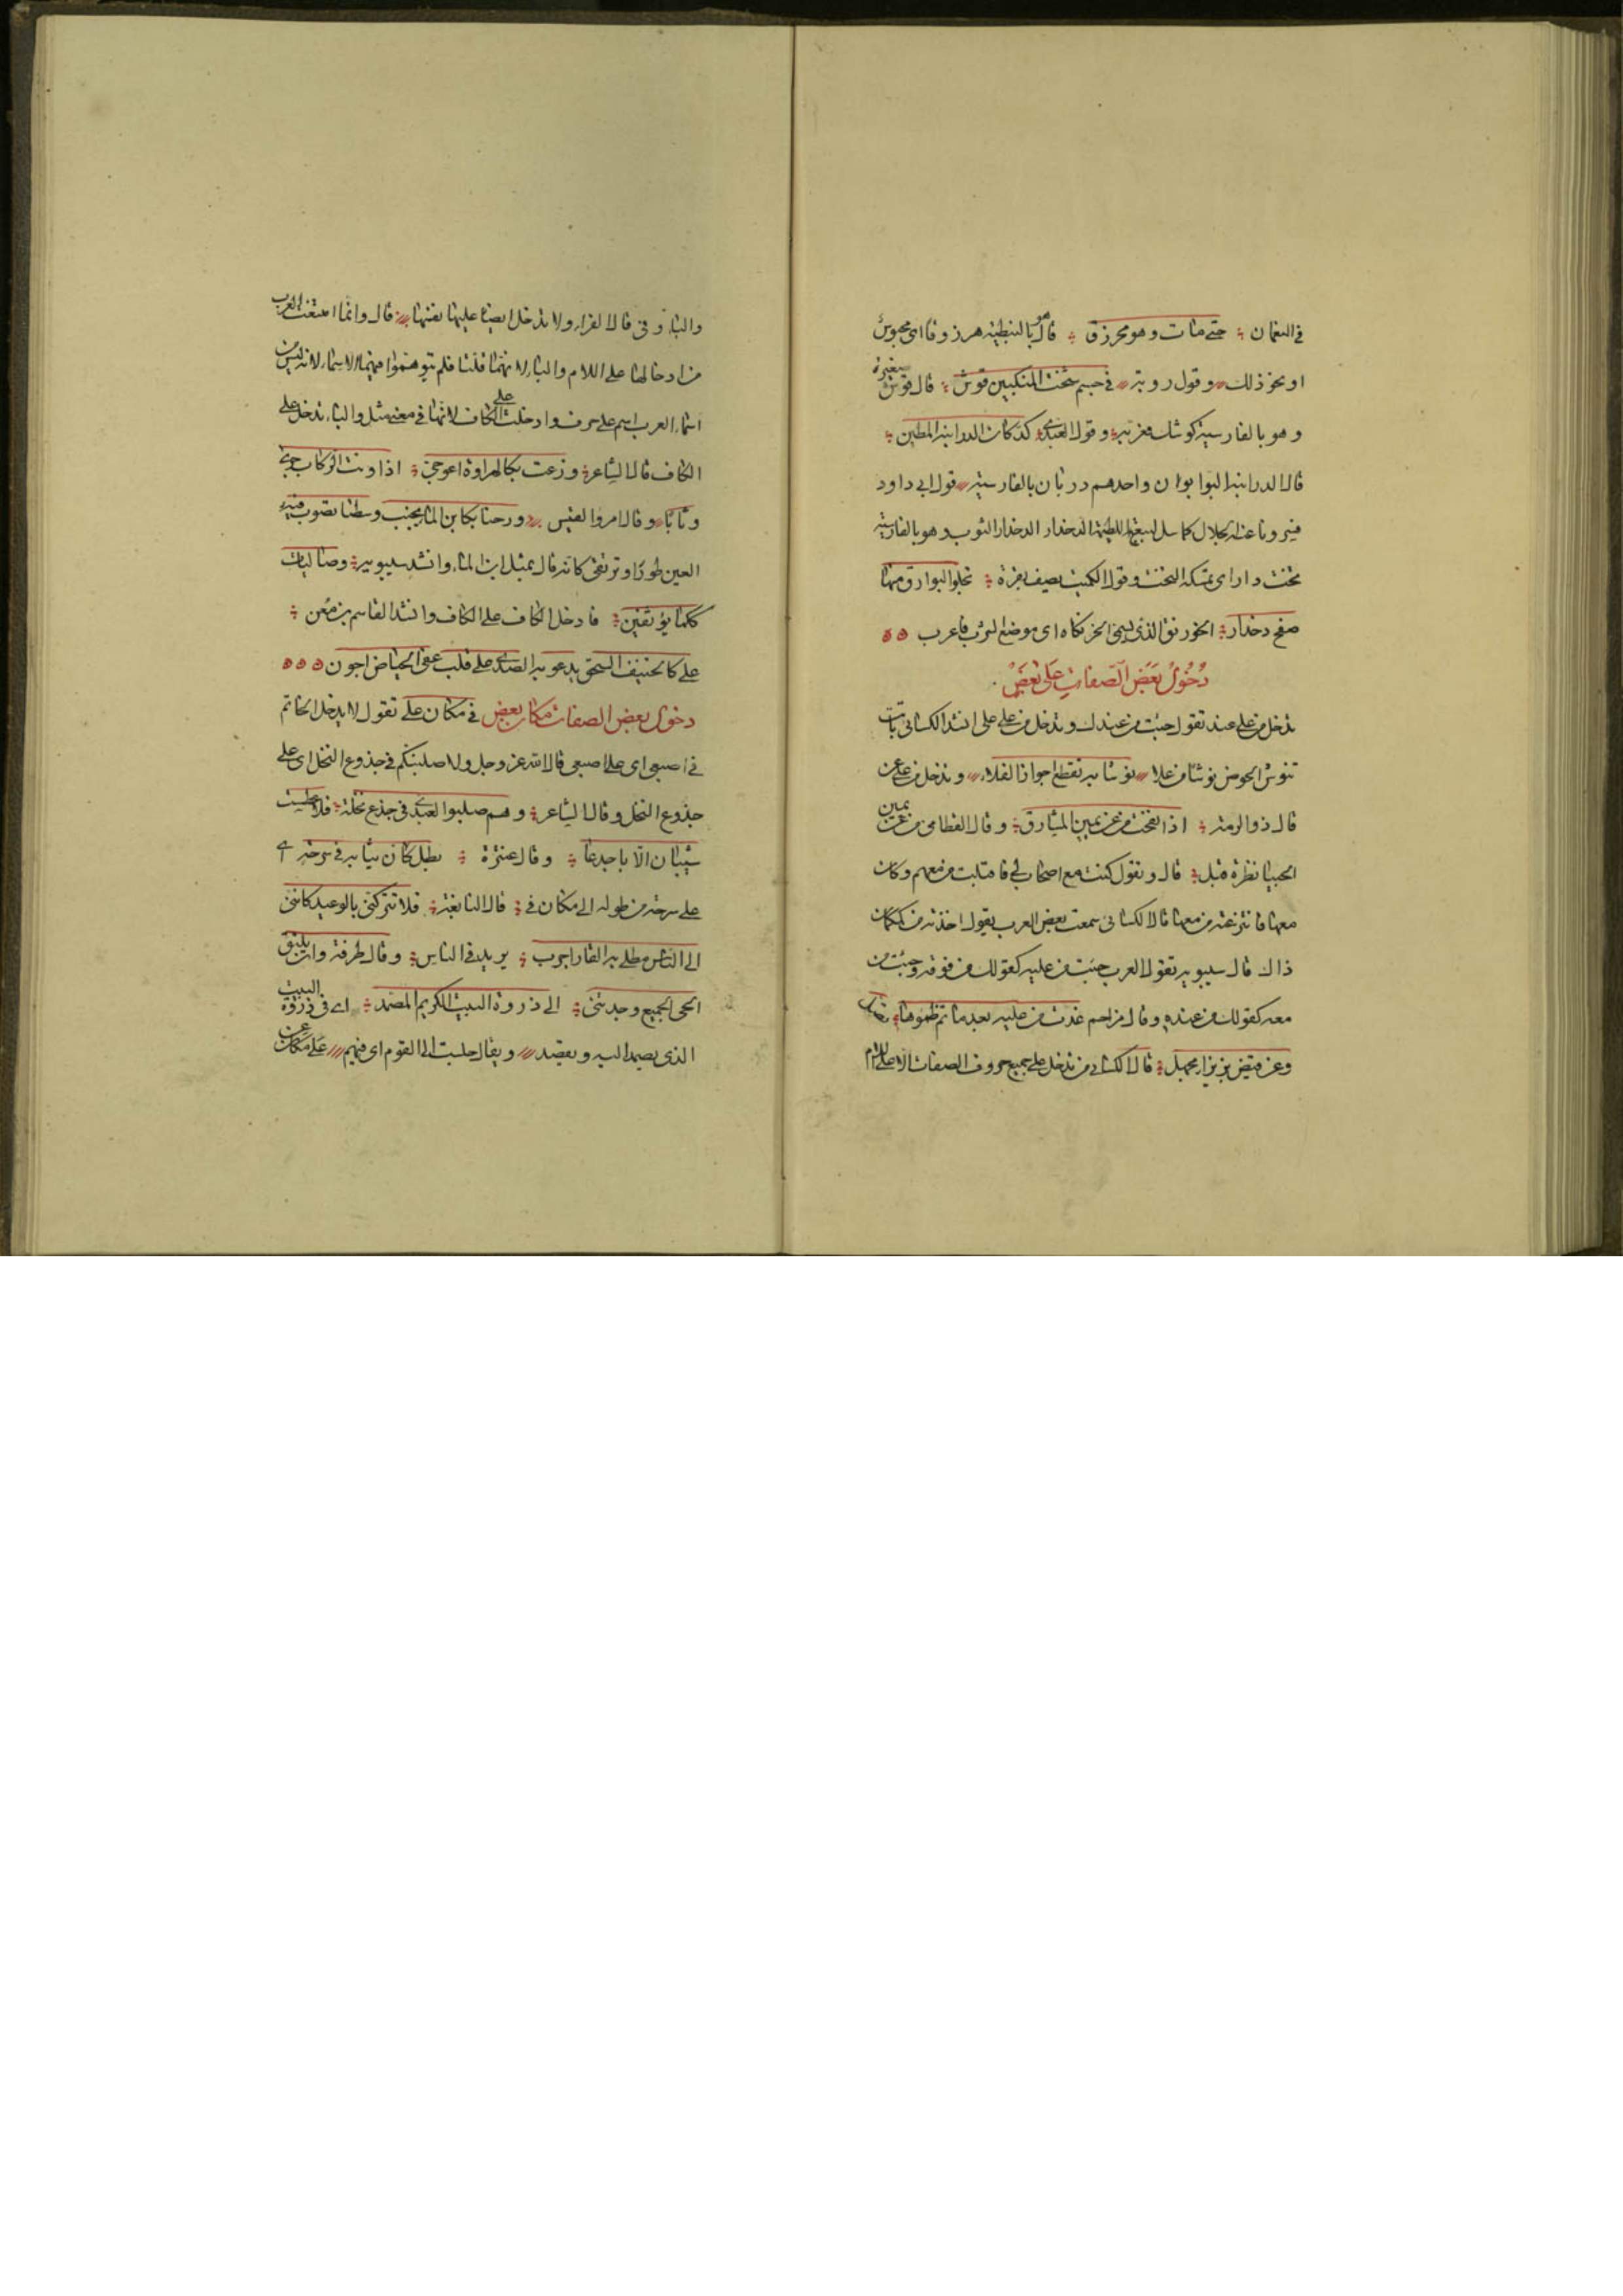 في النعمان حتى مات وهو محرزق قال هو بالنبطية هرزوقا اى محبوس
او نحو ذلك وقول روبة في جسم شخت المنكبين قوش قال قوش صغيرة
وهو بالفارسية كوشك فعربه وقول العبدى كدكان الدرابنة المطين
قال الدرابنة البوابون واحدهم دربان بالفارسية قول ابى داود
فسرونا عنه الجلال كما سل لبيع اللطيمة الدخدار الدخدار الثوب وهو بالفارسية
تخت دار اى يمسكه التخت وقول الكميت يصف بقرة تجلو البوارق منها
صفح دخدار الخورنق الذى يسمى الخرنكاه اى موضع الشرب فاعرب
دخول بعض الصفات على بعض
تدخل من على عند تقول جئت من عندك وتدخل من على على انشد الكسائى باتت
تنوش الحوض نوشا من علا نوشا به تقطع اجواز الفلا وتدخل من على عن
قال ذو الرمة اذا نفحت من عن يمين المشارق وقال القطامى من عن يمين
الحبيا نظرة قبل قال وتقول كنت مع اصحاب لى فاقبلت من معهم وكان
معها فانتزعته من معها قال الكسائى سمعت بعض العرب يقول اخذته من ككان
ذاك قال سيبويه تقول العرب جئت من عليه كقولك من فوقه وجئت من
معه كقولك من عنده وقال مزاحم غدت من عليه بعد ما تم ظموها تصل
وعن قيض بزيزاء مجهل قال الكسائى من تدخل على جميع حروف الصفات الا على اللام
والباء وفى قال الفراء ولا تدخل ايضا عليها نفسها قال وانما امتنعت العرب
من ادخالها على اللام والباء لانهما قلتا فلم يتوهموا فيهما الاسماء لانه ليس من
اسماء العرب اسم على حرف وادخلت على الكاف لانها في معنى مثل والباء تدخل على
الكاف قال الشاعر وزعت بكالهراوة اعوجى اذا ونت الركاب جرى
وثابا وقال امرؤ القيس ورحنا بكابن الماء يجنب وسطنا تصوب فيه
العين طورا وترتقى كانه قال بمثل ابن الماء وانشد سيبويه وصاليات
ككما يؤثفين فادخل الكاف على الكاف وانشد القاسم بن معن
على كالخنيف السحق يدعو به الصدى على قلب عفى الحياض اجون
دخول بعض الصفات مكان بعض في مكان على تقول لا يدخل الخاتم
في اصبعى اى على اصبعى قال الله عز وجل ولاصلبنكم في جذوع النخل اى على
جذوع النخل وقال الشاعر وهم صلبوا العبدى فى جذع نخلة فلا عطست
شيبان الا باجدعا وقال عنترة بطل كان ثيابه في سرحة اى
على سرحة من طوله الى مكان فى قال النابغة فلا تتركنى بالوعيد كاننى
الى الناس مطلى به القار اجرب يريد فى الناس وقال طرفة وان يلتق
الحى الجميع وجدتنى الى ذروة البيت الكريم المصمد اى فى ذروة البيت
الذى يصمد اليه ويقصد ويقال جلست الى القوم اى فيهم على مكان عن